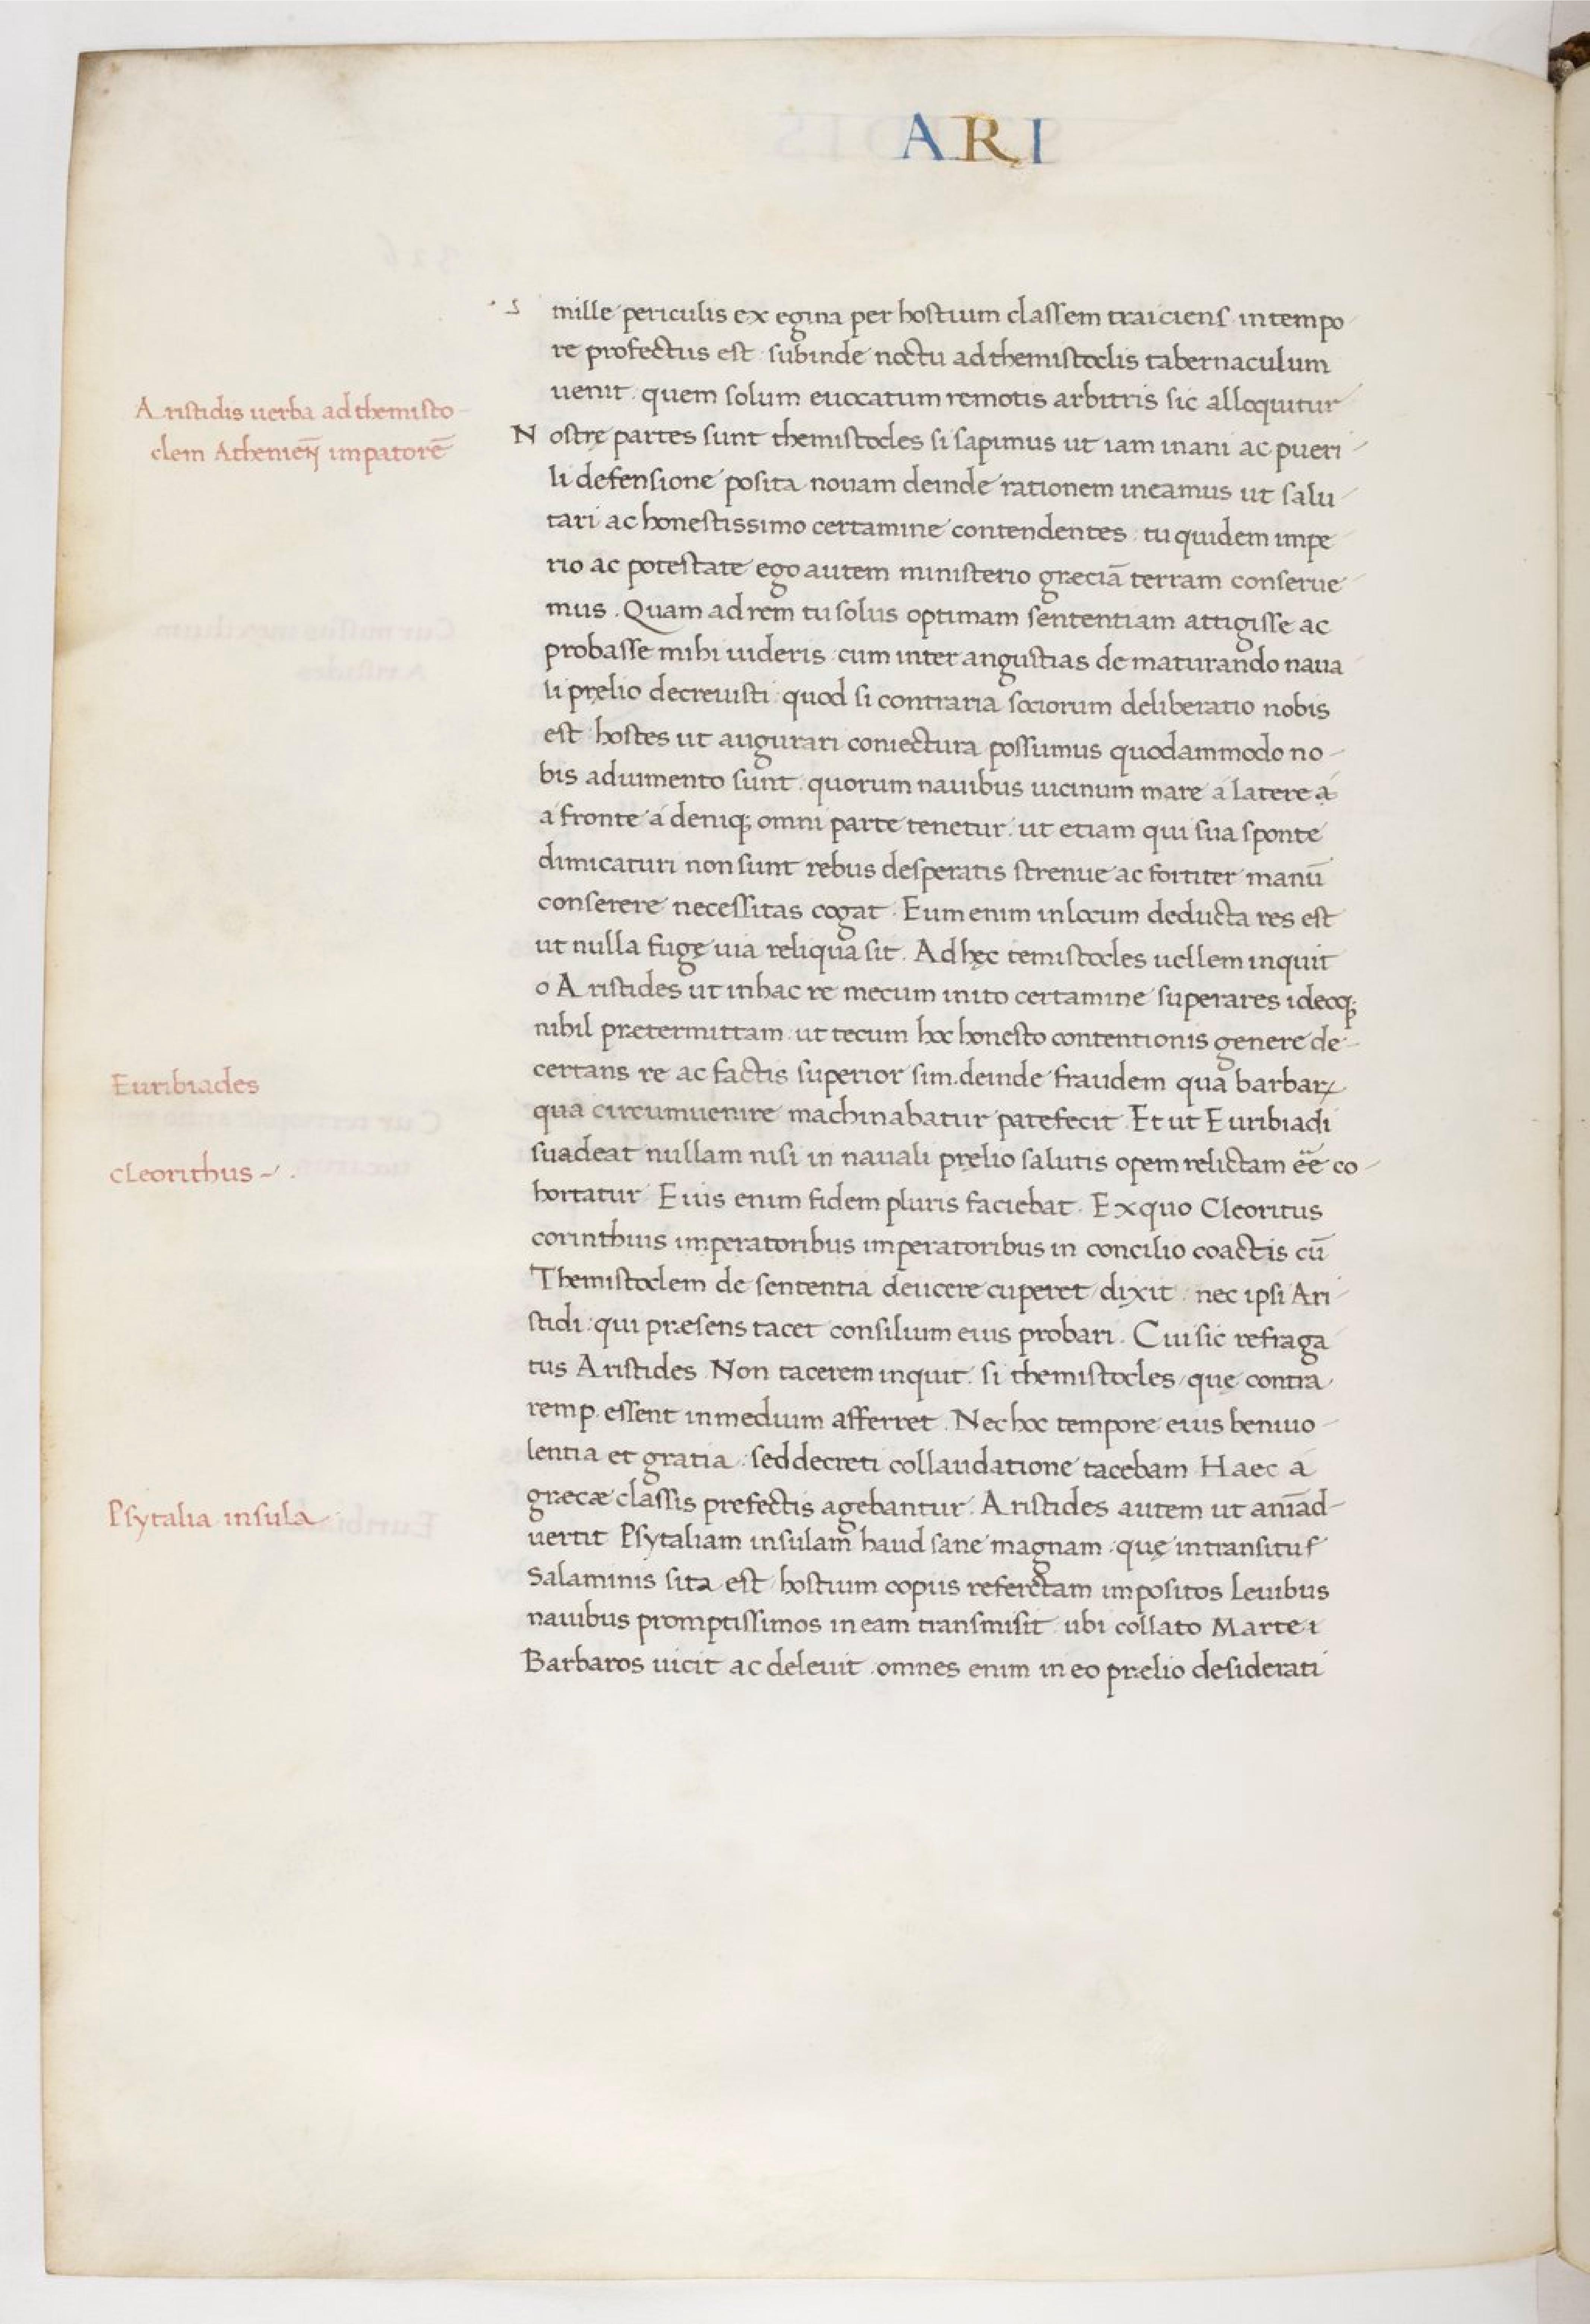 ARI
mille periculis ex egina per hostium classem traiciens intempo
re profectus est subinde noctu ad themistoclis tabernaculum
uenit. quem solum euocatum remotis arbitris sic alloquitur
Aristidis uerba ad themisto
clem Atheniēꝶ impatorē
Nostrę partes sunt themistocles si sapimus ut iam inani ac pueri
li defensione posita nouam deinde rationem ineamus ut salu
tari ac honestissimo certamine contendentes. tu quidem impe
rio ac potestate ego autem ministerio græciā terram conserue
mus. Quam ad rem tu solus optimam sententiam attigisse ac
probasse mihi uideris. cum inter angustias de maturando naua
li prelio decreuisti. quod si contraria sociorum deliberatio nobis
est hostes ut augurari coniectura possumus quodammodo no-
bis adiumento sunt. quorum nauibus uicinum mare a latere a
a fronte a deniq; omni parte tenetur. ut etiam qui sua sponte
dimicaturi non sunt rebus desperatis strenue ac fortiter manū
conserere necessitas cogat. Eum enim in locum deducta res est
ut nulla fugę uia reliqua sit. Ad hęc temistocles uellem inquit
o Aristides ut in hac re mecum inito certamine superares ideoq;
nihil prætermittam. ut tecum hoc honesto contentionis genere de-
certans re ac factis superior sim. deinde fraudem qua barbaꝝ
Euribiades
qua circumuenire machinabatur patefecit. Et ut Euribiadi
suadeat nullam nisi in nauali prelio salutis opem relictam ēē co-
cleorithus
hortatur. Eius enim fidem pluris faciebat. Ex quo Cleoritus
corinthius imperatoribus imperatoribus in concilio coactis cū
Themistoclem de sententia deucere cuperet dixit. nec ipsi Ari
stidi: qui præsens tacet consilium eius probari. Cui sic refraga
tus Aristides. Non tacerem inquit. si themistocles quę contra
remp. essent in medium afferret. Nec hoc tempore eius beniuo-
lentia et gratia. sed decreti collaudatione tacebam Haec a
græcæ classis prefectis agebantur. Aristides autem ut aniād-
Psytalia insula
uertit Psytaliam insulam haud sane magnam. quę in transitus
Salaminis sita est hostium copiis referctam impositos leuibus
nauibus promptissimos in eam transmisit ubi collato Marte
Barbaros uicit ac deleuit. omnes enim in eo prælio desiderati